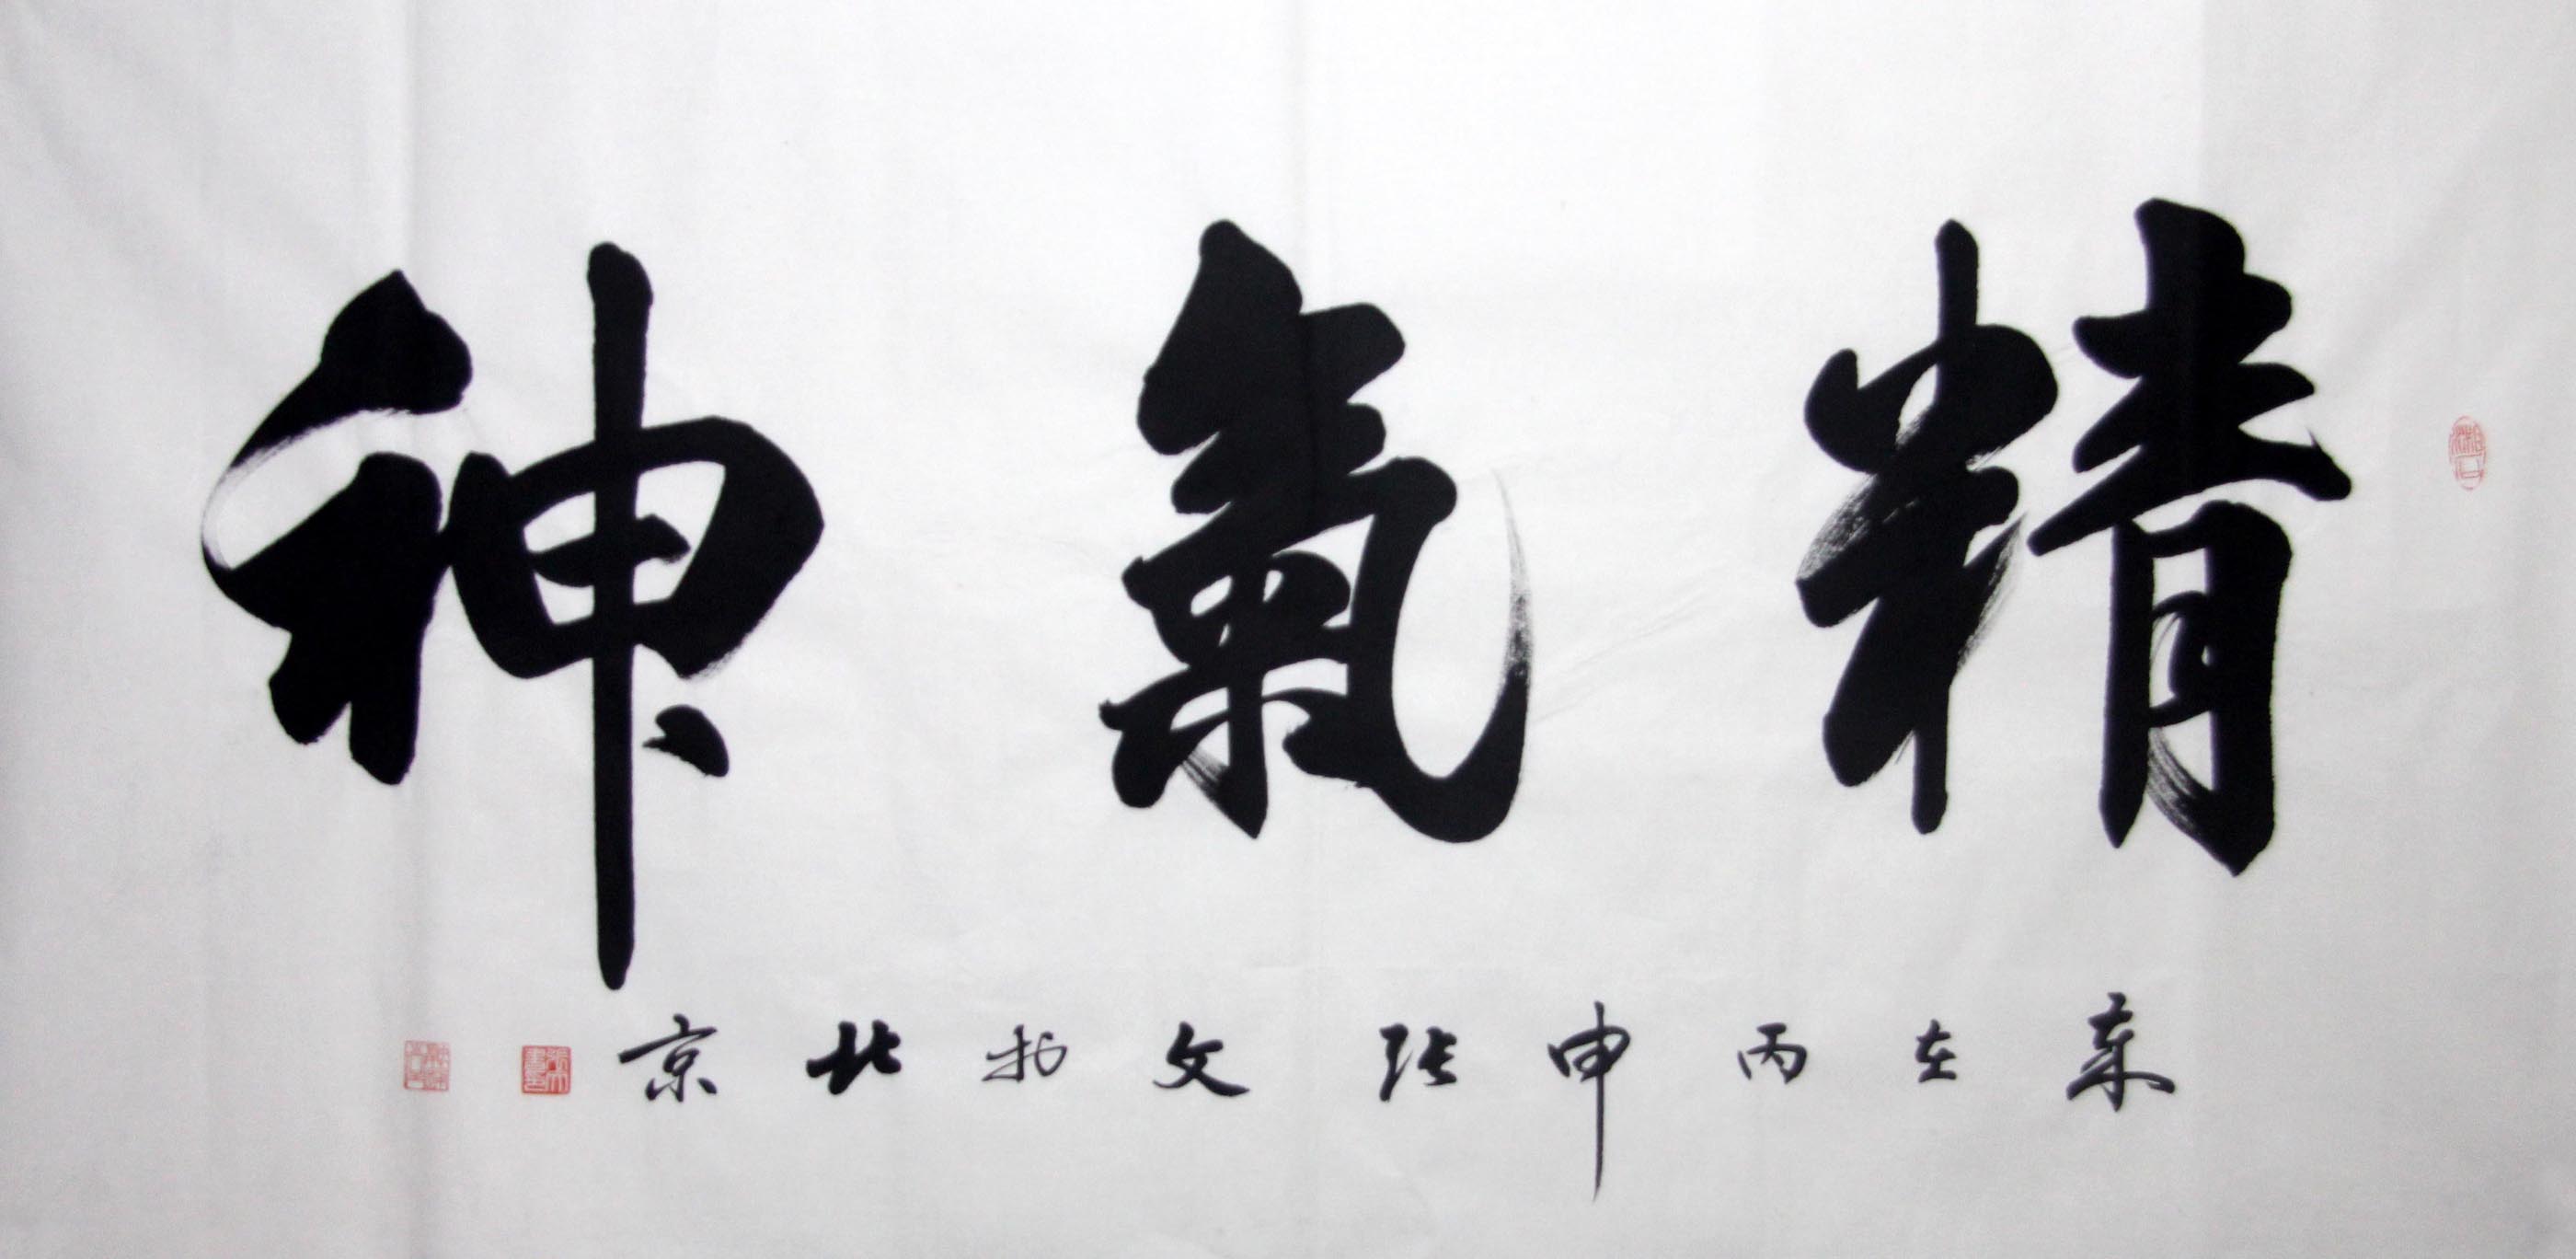 精氣神
在丙申張文於北京